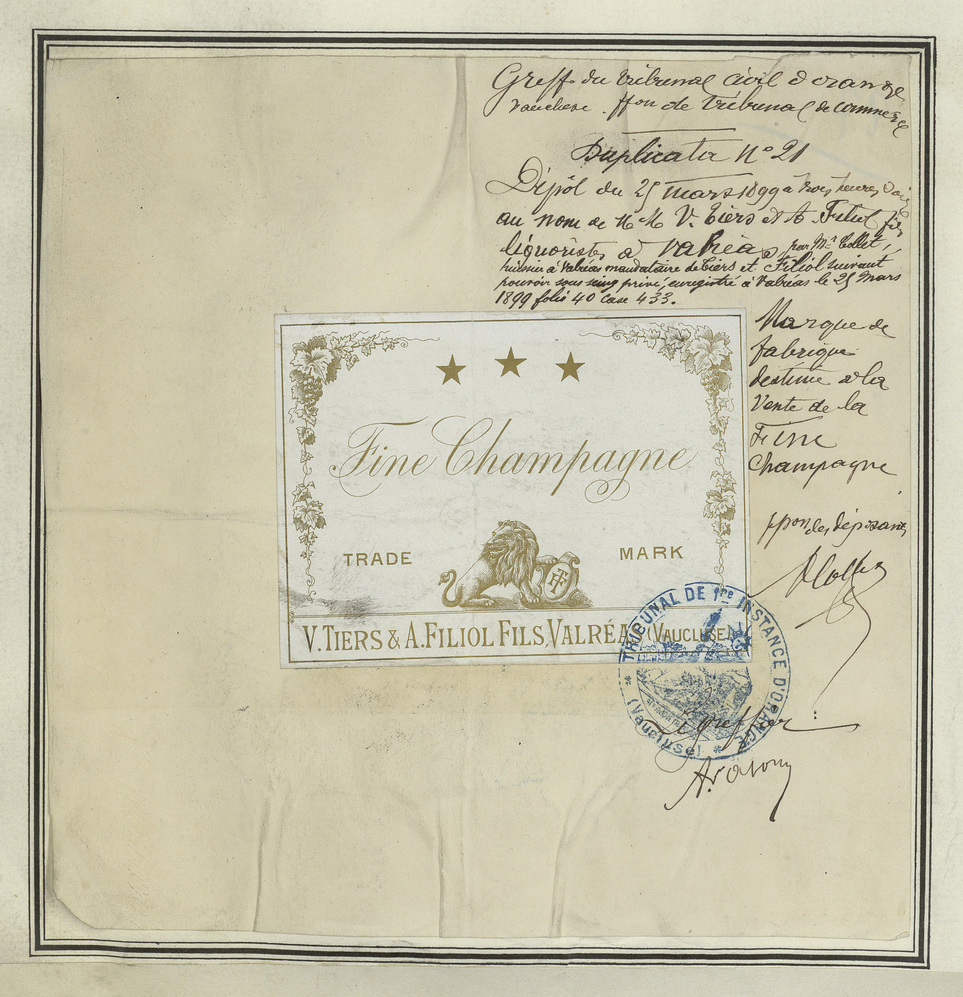 Greffe du tribunal civil d'orange
Vaucluse. ffon de Tribunal de commerce
Duplicata N° 21
Dépôt du 25 mars 1899 à trois heures soir
au nom de M M V. Tiers et A. Filiol fils
liquoristes à Valréas, par Mr Collet,
huissier à Valréas mandataire de Tiers et Filiol suivant
pouvoir sous seing privé, enregistré à Valréas le 25 Mars
1899 folio 40 Case 433.
Marque de
fabrique
destinée à la
Vente de la
Fine
Champagne
Fine Champagne
TRADE MARK
V. TIERS & A. FILIOL FILS, VALRÉAS (VAUCLUSE)
des déposants
TRIBUNAL DE 1re INSTANCE D'ORANGE
* (Vaucluse) *
Le greffier